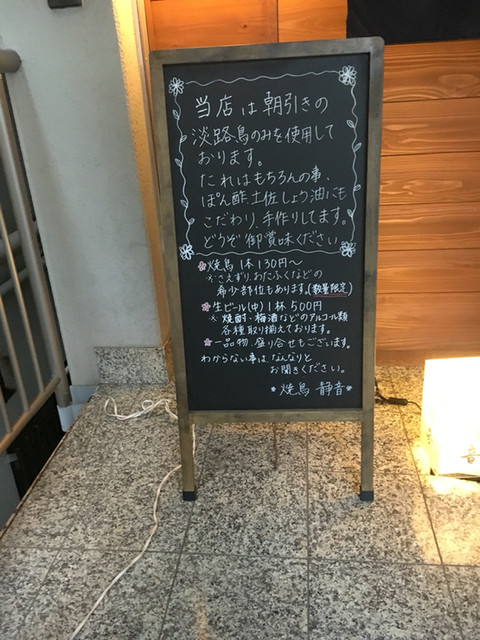 当店は朝引きの
淡路鳥のみを使用して
おります。
たれはもちろんの事、
ぽん酢、土佐しょう油にも
こだわり、手作りしてます。
どうぞ御賞味ください
焼鳥 1本130円〜
※さえずり、おたふくなどの
希少部位もあります。(数量限定)
生ビール(中) 1杯 500円
※ 焼酎、梅酒などのアルコール類
各種取り揃えております。
一品物、盛り合せもございます。
わからない事は、なんなりと
お聞きください。
焼鳥 静音